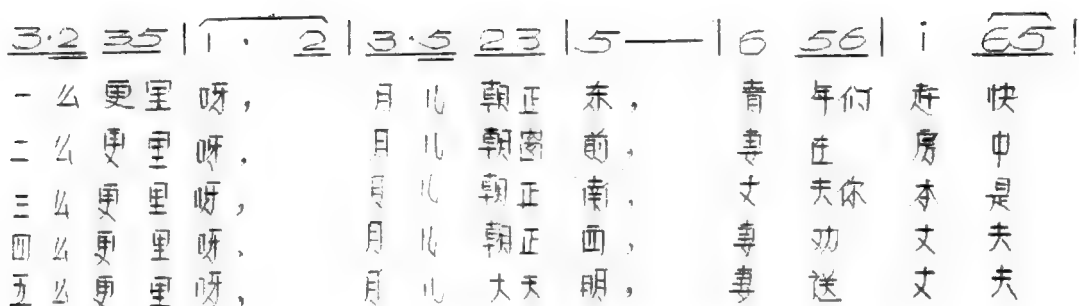 3·2 35 | i · 2 | 3·5 23 | 5 — | 6 56 | i 65 |
一么更里呀, 月儿朝正东, 青年们赶快
二么更里呀, 月儿朝窗前, 妻在房中
三么更里呀, 月儿朝正南, 丈夫你本是
四么更里呀, 月儿朝正西, 妻劝丈夫
五么更里呀, 月儿大天明, 妻送丈夫